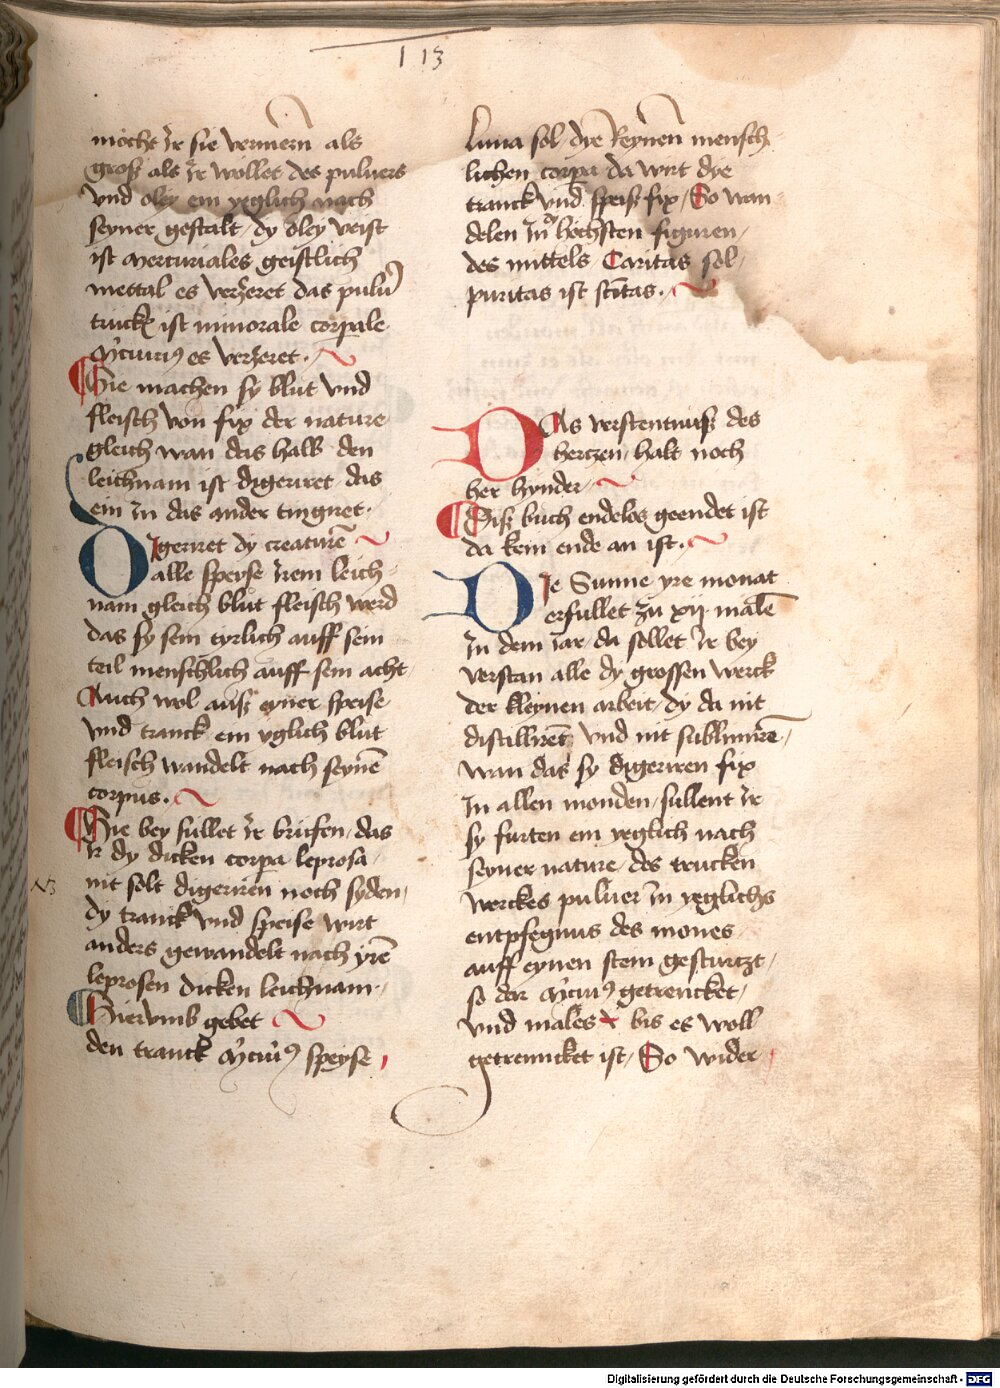 113
mocht Ir sie vermern als
groß als Ir wollet des puluers
vnd oley ein yeglich nach
seyner gestalt / dy oley veist
ist mercuriales geistlich
mettal es verzeret das
ist minorale corpale
es verzeret.
Hie machen sy blut vnd
fleisch von fix der nature
gleich wan das halb den
leichnam ist digeriret das
ein In das ander tingiret.
Digeriret dy creaturē
alle speyse Irem leich-
nam gleich blut fleisch werd
das sy sein tyrlich auff sein
teil menschlich auff sein acht /
Auch wol auß eyner speise
vnd tranck ein yglich blut
fleisch wandelt nach seynē
corpus.
Hie bey sullet Ir brufen / das
Ir dy dicken corpa leprosa /
nit solt digeriren noch syden /
dy tranck vnd speise wirt
anders gewandelt nach yrē
leprosen dicken leichnam.
Hiervmb gebet
den tranck speyse
Luna sol / dye Reynen mensch-
lichen corpa da wirt dye
tranck vnd speiß fix / So wan-
delen In höchsten figuren /
des mittels Caritas sol /
puritas ist
DAs verstentniß des
hertzen / halt noch
her hynder /
Diß buch endelos geendet ist
da kein ende an ist.
DIe Sunne yre monat
erfullet zu xij malē
In dem Iar / da sollet Ir bey
verstan alle dy grossen werck
der kleynen arbeit / dy da nit
distillirēt vnd nit sublimirē /
wan das sy digeriren fix
In allen monden / sullent Ir
sy furten ein yeglich nach
seyner nature / des trucken
werckes puluer In yeglichs
entpfegnus des mones
auff eynen stein gesturtzt /
so der getrencket /
vnd males bis es woll
getrenncket ist / So wider
Digitalisierung gefördert durch die Deutsche Forschungsgemeinschaft - DFG